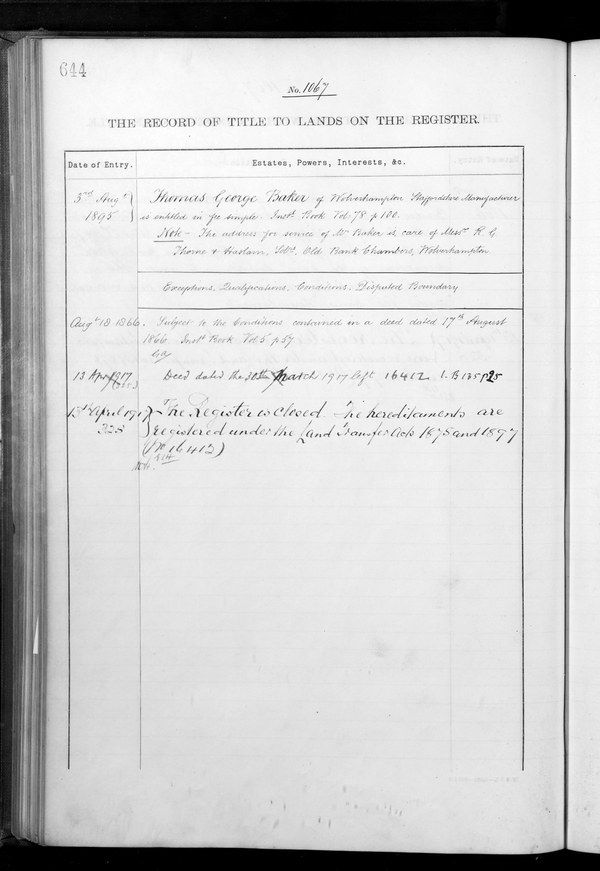 644
No. 1067
THE RECORD OF TITLE TO LANDS ON THE REGISTER.
Date of Entry.
Estates, Powers, Interests, &c.
3rd Augt 1895
Thomas George Baker of Wolverhampton Staffordshire Manufacturer
is entitled in fee simple. Inst. Book Vol 78 p 100.
Note - The address for service of Mr Baker is care of Messrs R. G.
Thorne & Haslam, Solrs, Old Bank Chambers, Wolverhampton
Exceptions, Qualifications, Conditions, Disputed Boundary
Augt 18 1866.
Subject to the Conditions contained in a deed dated 17th August
1866. Inst. Book Vol 5 p 57
13 Apr 1917
Deed dated the 30th March 1917 left 16412 I.B 135 p25
13th April 1917
325
The Register is Closed. The hereditaments are
registered under the Land Transfer Acts 1875 and 1897
(No 16412)